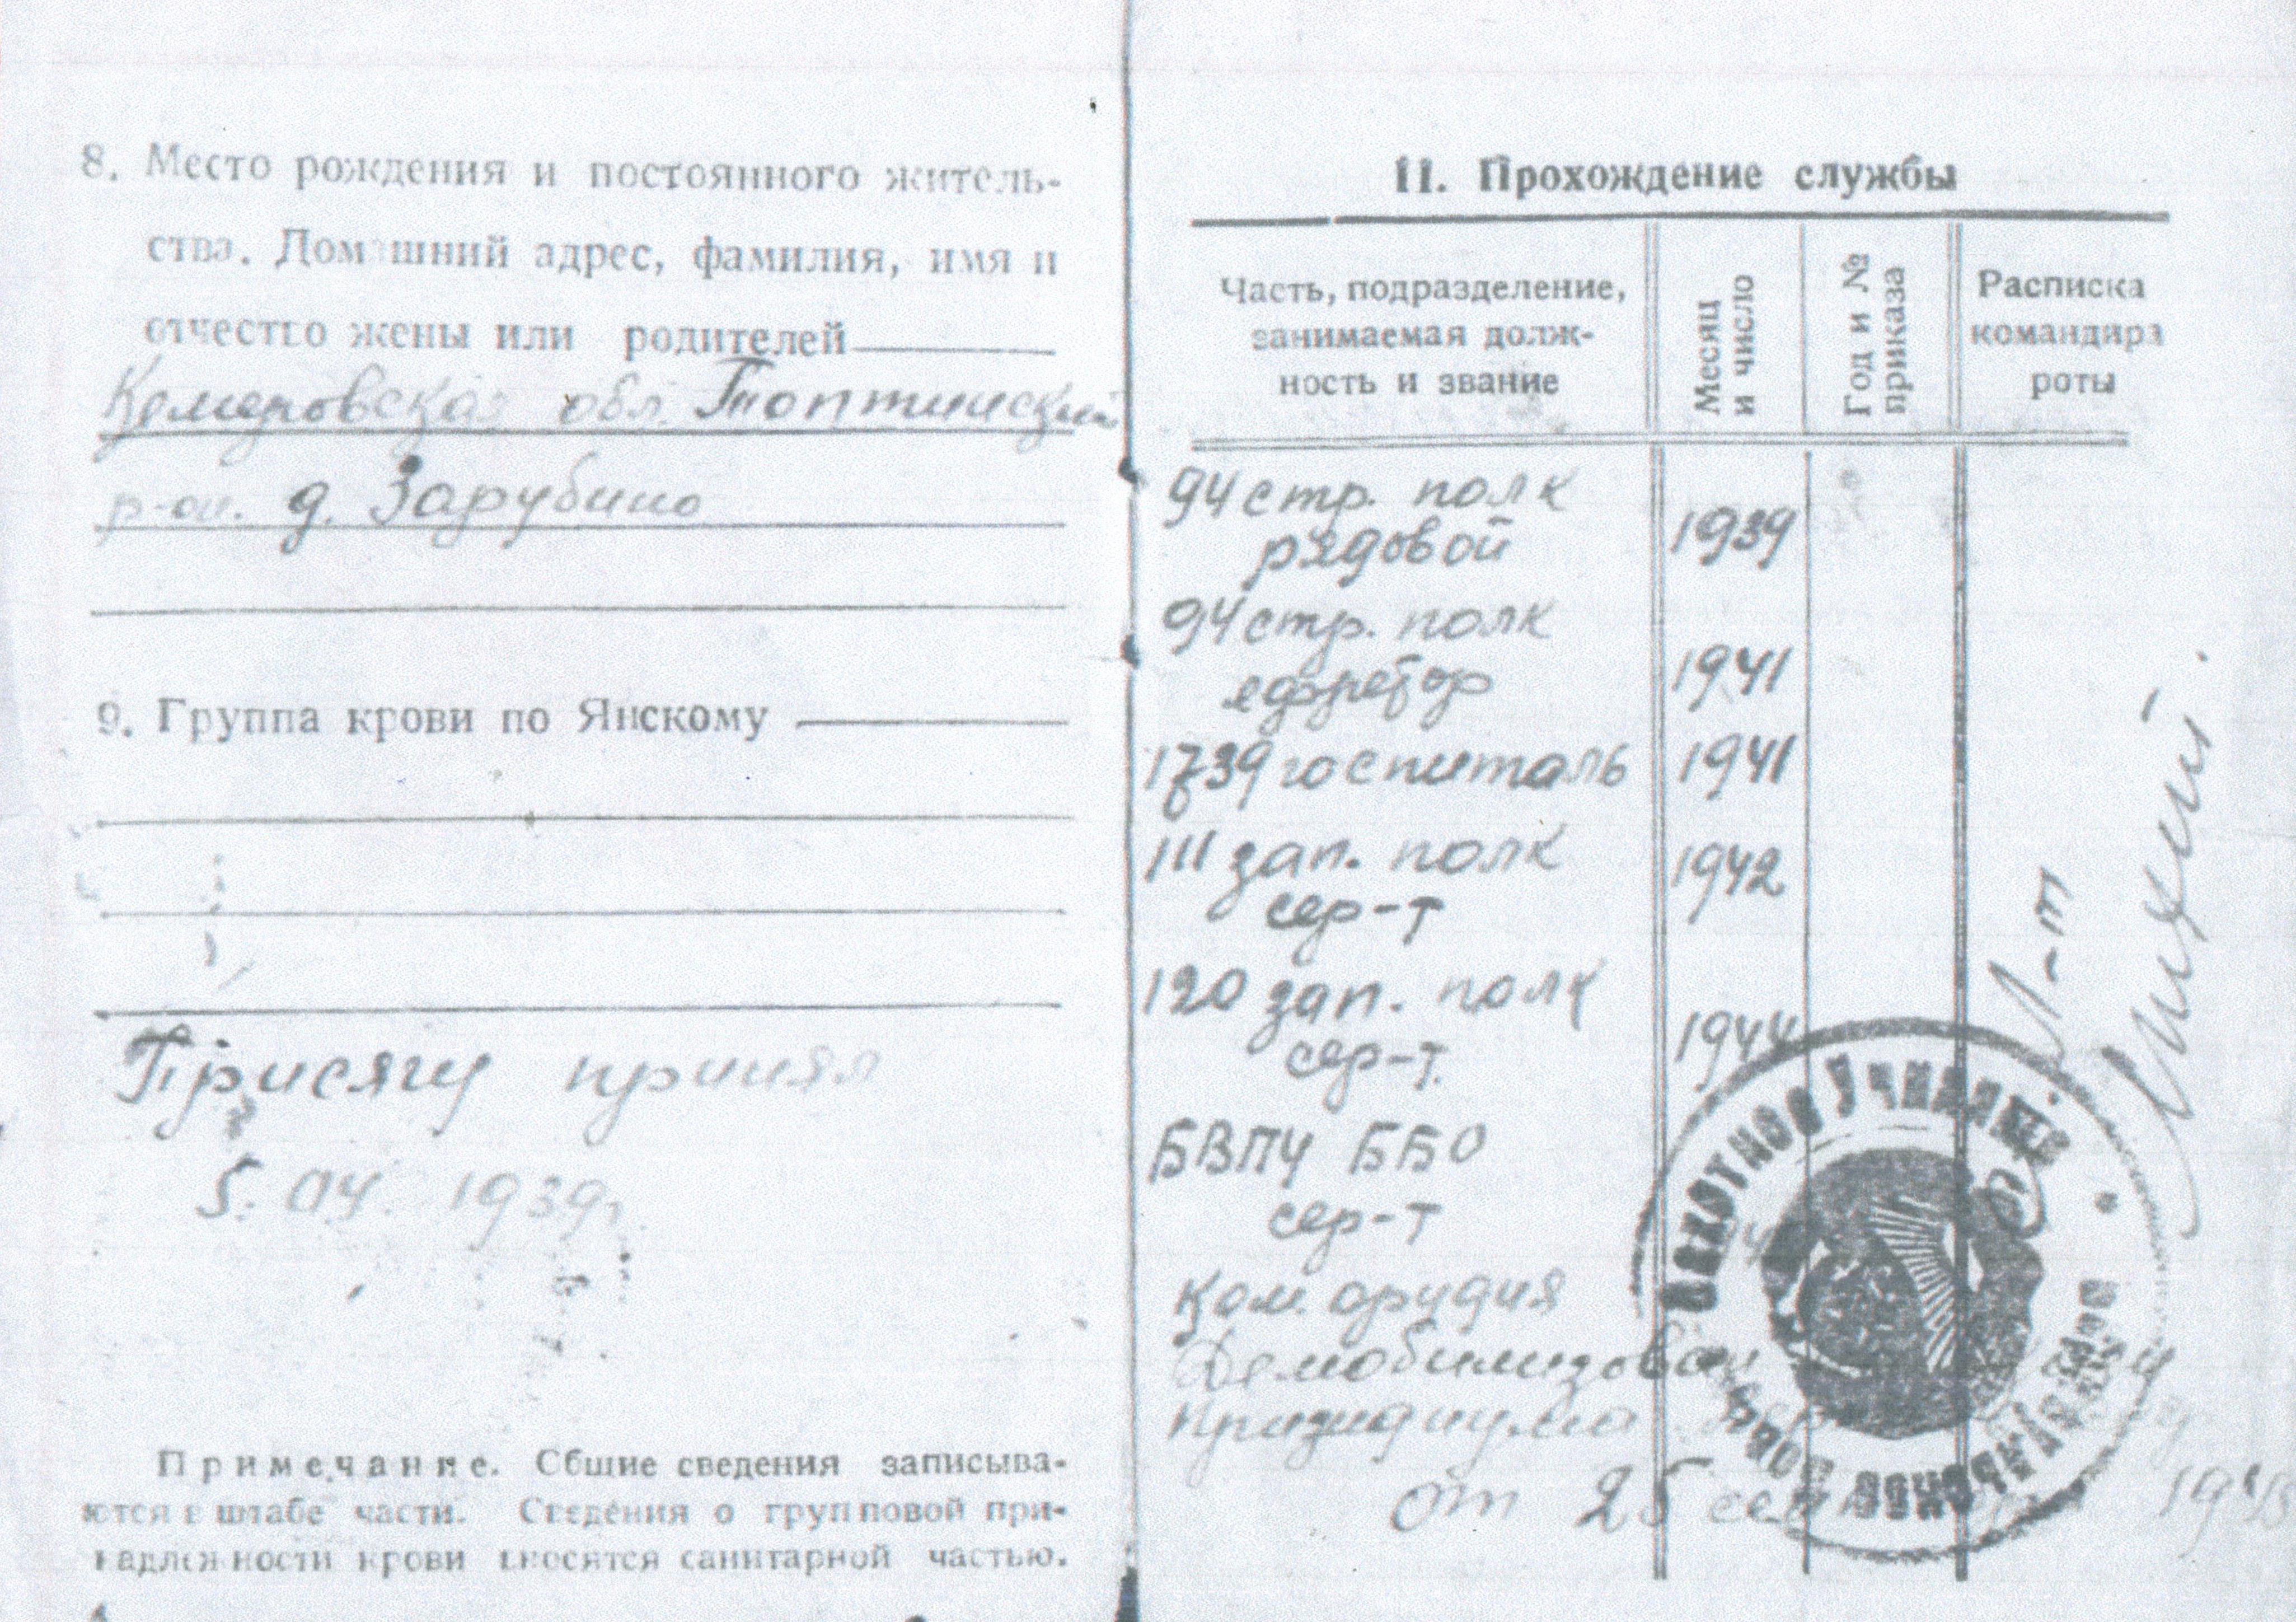 8. Место рождения и постоянного житель-
ства. Домашний адрес, фамилия, имя и
отчество жены или родителей
Кемеровская обл. Топтинский
р-он. д. Зарубино
9. Группа крови по Янскому
Присягу принял
5. 04. 1939г.
Примечание. Общие сведения записыва-
ются в штабе части. Сведения о групповой при-
надлежности крови вносятся санитарной частью.
II. Прохождение службы
Часть, подразделение,
занимаемая долж-
ность и звание
Месяц
и число
Год и №
приказа
Расписка
командира
роты
94 стр. полк
рядовой
1939
94 стр. полк
ефрейтор
1941
1739 госпиталь
1941
111 зап. полк
сер-т
1942
120 зап. полк
сер-т.
1944
БВПУ ББО
сер-т
Ком. орудия
Демобилизован
Призидиума
от 25
Л-т
Пехотное Училище